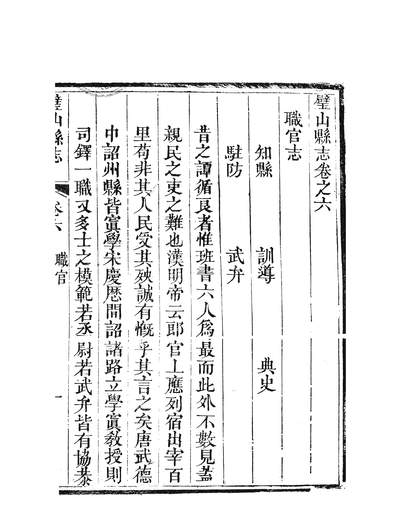 璧山縣志卷之六
職官志
知縣 訓導 典史
駐防 武弁
昔之譚循良者惟班書六人爲最而此外不數見蓋
親民之吏之難也漢明帝云郎官上應列宿出宰百
里苟非其人民受其殃誠有慨乎其言之矣唐武德
中詔州縣皆寘學宋慶厯間詔諸路立學寘敎授則
司鐸一職又多士之模範若丞尉若武弁皆有協恭
璧山縣志 卷六 職官 一